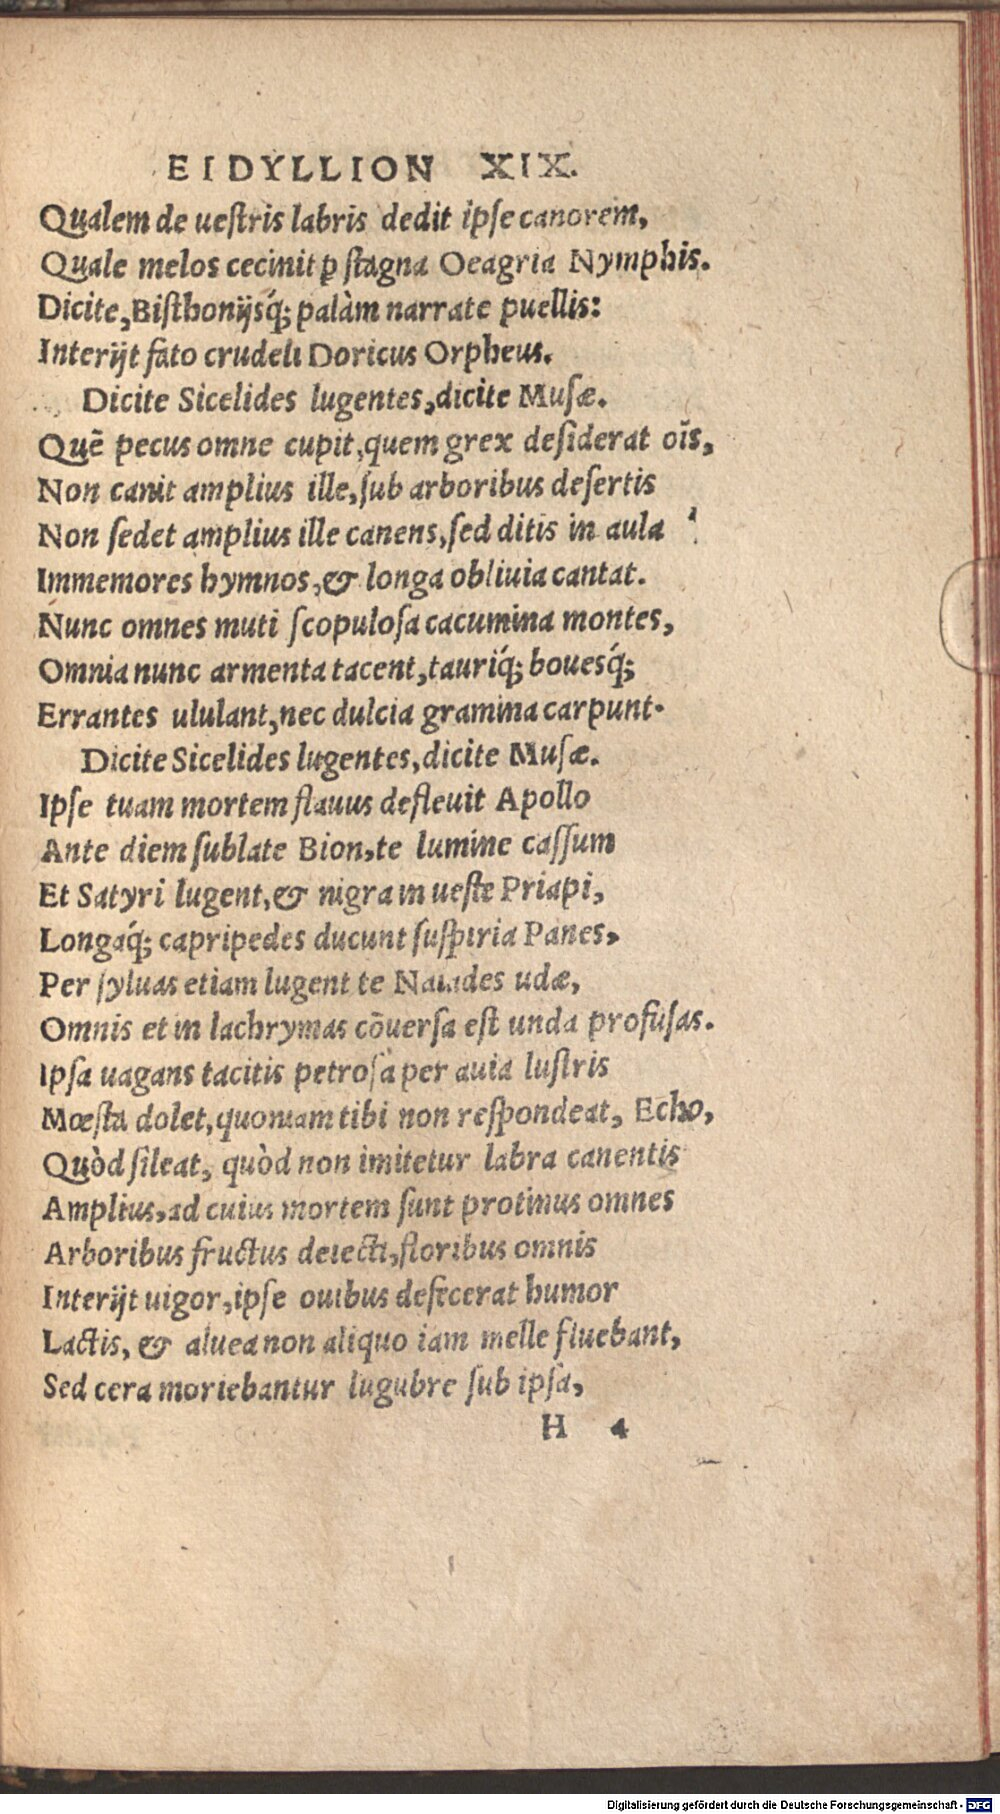 EIDYLLION XIX.
Qualem de ueſtris labris dedit ipſe canorem,
Quale melos cecinit ꝑ ſtagna Oeagria Nymphis.
Dicite, Biſthonijsq́; palàm narrate puellis:
Interijt fato crudeli Doricus Orpheus.
Dicite Sicelides lugentes, dicite Muſæ.
Quē pecus omne cupit, quem grex deſiderat oīs,
Non canit amplius ille, ſub arboribus deſertis
Non ſedet amplius ille canens, ſed ditis in aula
Immemores hymnos, & longa obliuia cantat.
Nunc omnes muti ſcopuloſa cacumina montes,
Omnia nunc armenta tacent, tauriq́; bouesq́;
Errantes ululant, nec dulcia gramina carpunt.
Dicite Sicelides lugentes, dicite Muſæ.
Ipſe tuam mortem flauus defleuit Apollo
Ante diem ſublate Bion, te lumine caſſum
Et Satyri lugent, & nigra in ueſte Priapi,
Longaq́; capripedes ducunt ſuſpiria Panes,
Per ſyluas etiam lugent te Naiades udæ,
Omnis et in lachrymas cōuerſa eſt unda profuſas.
Ipſa uagans tacitis petroſa per auia luſtris
Mœſta dolet, quoniam tibi non reſpondeat, Echo,
Quòd ſileat, quòd non imitetur labra canentis
Amplius, ad cuius mortem ſunt protinus omnes
Arboribus fructus deiecti, floribus omnis
Interijt uigor, ipſe ouibus defecerat humor
Lactis, & aluea non aliquo iam melle fluebant,
Sed cera moriebantur lugubre ſub ipſa,
H 4
Digitalisierung gefördert durch die Deutsche Forschungsgemeinschaft - DFG